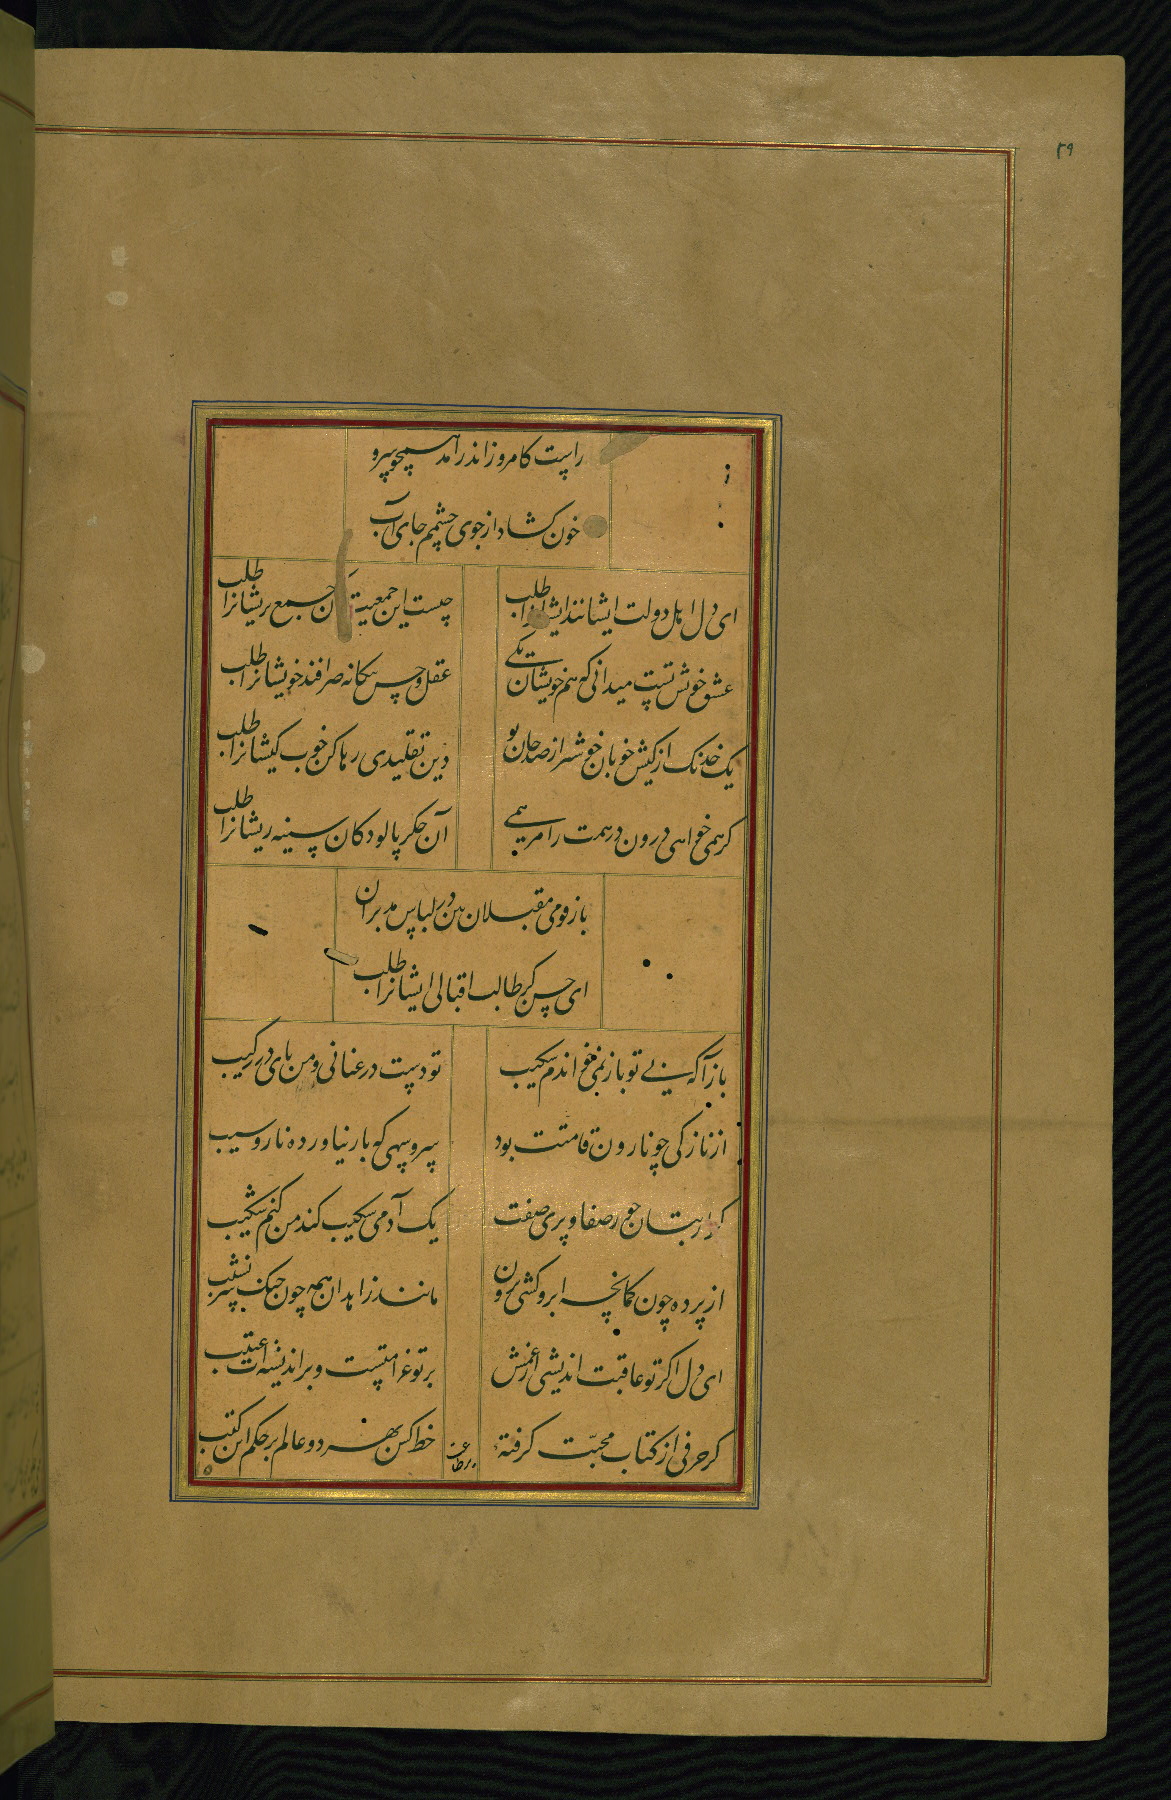 ۲۹
راست کامروز اندر آمد همچو سرو
خون کشاد از جوی چشمم جای آب
ای دل اهل دولت ایشانند ایشانرا طلب
چیست این جمعیت آن جمع پریشانرا طلب
عشق خویش تست میدانی که هم خویشان یکی
عقل و حس بیکانه صرافند خویشانرا طلب
یک خدنک از کیش خوبان خوشتر از صد جان بود
دین تقلیدی رها کن خوب کیشانرا طلب
کر همی خواهی درون درهمت را مرهمی
آن جکر پالودکان سینه ریشانرا طلب
باز قومی مقبلان بین در لباس مدبران
ای حسن کر طالب اقبالی ایشانرا طلب
باز آ که بی تو باز نمی خواندم شکیب
تو دست در عنانی و من پای در رکیب
از نازکی چو نارون قامتت بود
سرو سهی که بار نیاورده نار و سیب
کز بتان حور صفا و پری صفت
یک آدمی شکیب کند من کنم شکیب
از پرده چون کمانچه ابرو کشی برون
مانند زاهدان همه چون جنک سر بشیب
ای دل اکر تو عاقبت اندیشی از غمش
بر تو غرامتست و بر اندیشه ات عتیب
کر حرفی از کتاب محبت کرفتهٔ
خط کش بهر دو عالم بر حکم این کتیب